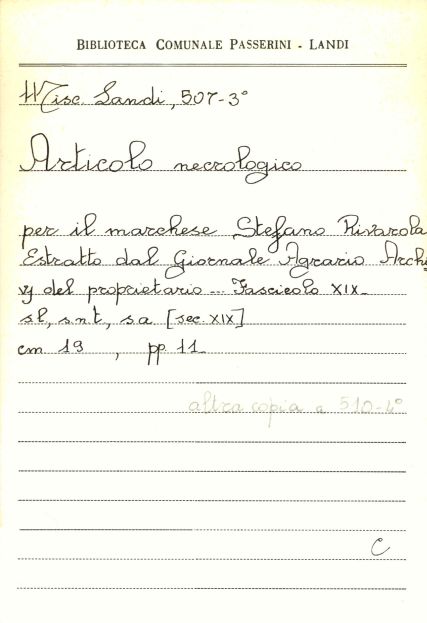 BIBLIOTECA COMUNALE PASSERINI - LANDI
Misc. Landi, 507-3°
Articolo necrologico
per il marchese Stefano Rivarola
Estratto dal Giornale Agrario Archi
vj del proprietario ... Fascicolo XIX_
s.l., s.n.t., s.a. [sec. XIX]
cm 19 , pp. 11_
altra copia a 510-4°
C